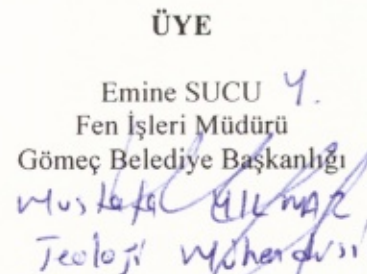 ÜYE
Emine SUCU Y.
Fen İşleri Müdürü
Gömeç Belediye Başkanlığı
Mustafa YILMAZ
Jeoloji Mühendisi